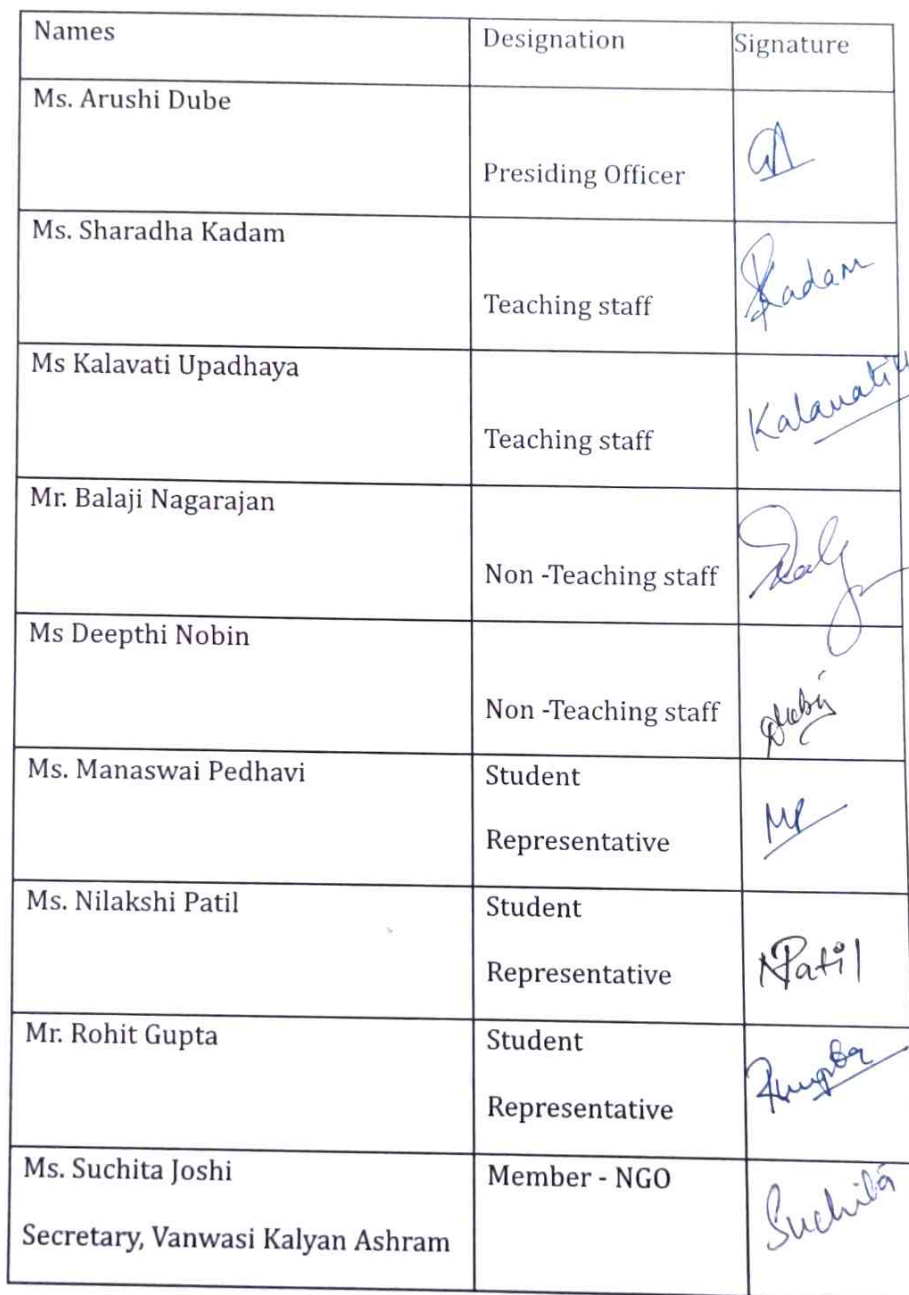 Names Designation Signature
Ms. Arushi Dube
Presiding Officer
Ms. Sharadha Kadam
Kadam
Teaching staff
Ms Kalavati Upadhaya
Kalavati
Teaching staff
Mr. Balaji Nagarajan
Non -Teaching staff
Ms Deepthi Nobin
Non -Teaching staff
Ms. Manaswai Pedhavi Student
MP
Representative
Ms. Nilakshi Patil Student
Representative NPatil
Mr. Rohit Gupta Student
Representative
Ms. Suchita Joshi Member - NGO
Suchita
Secretary, Vanwasi Kalyan Ashram